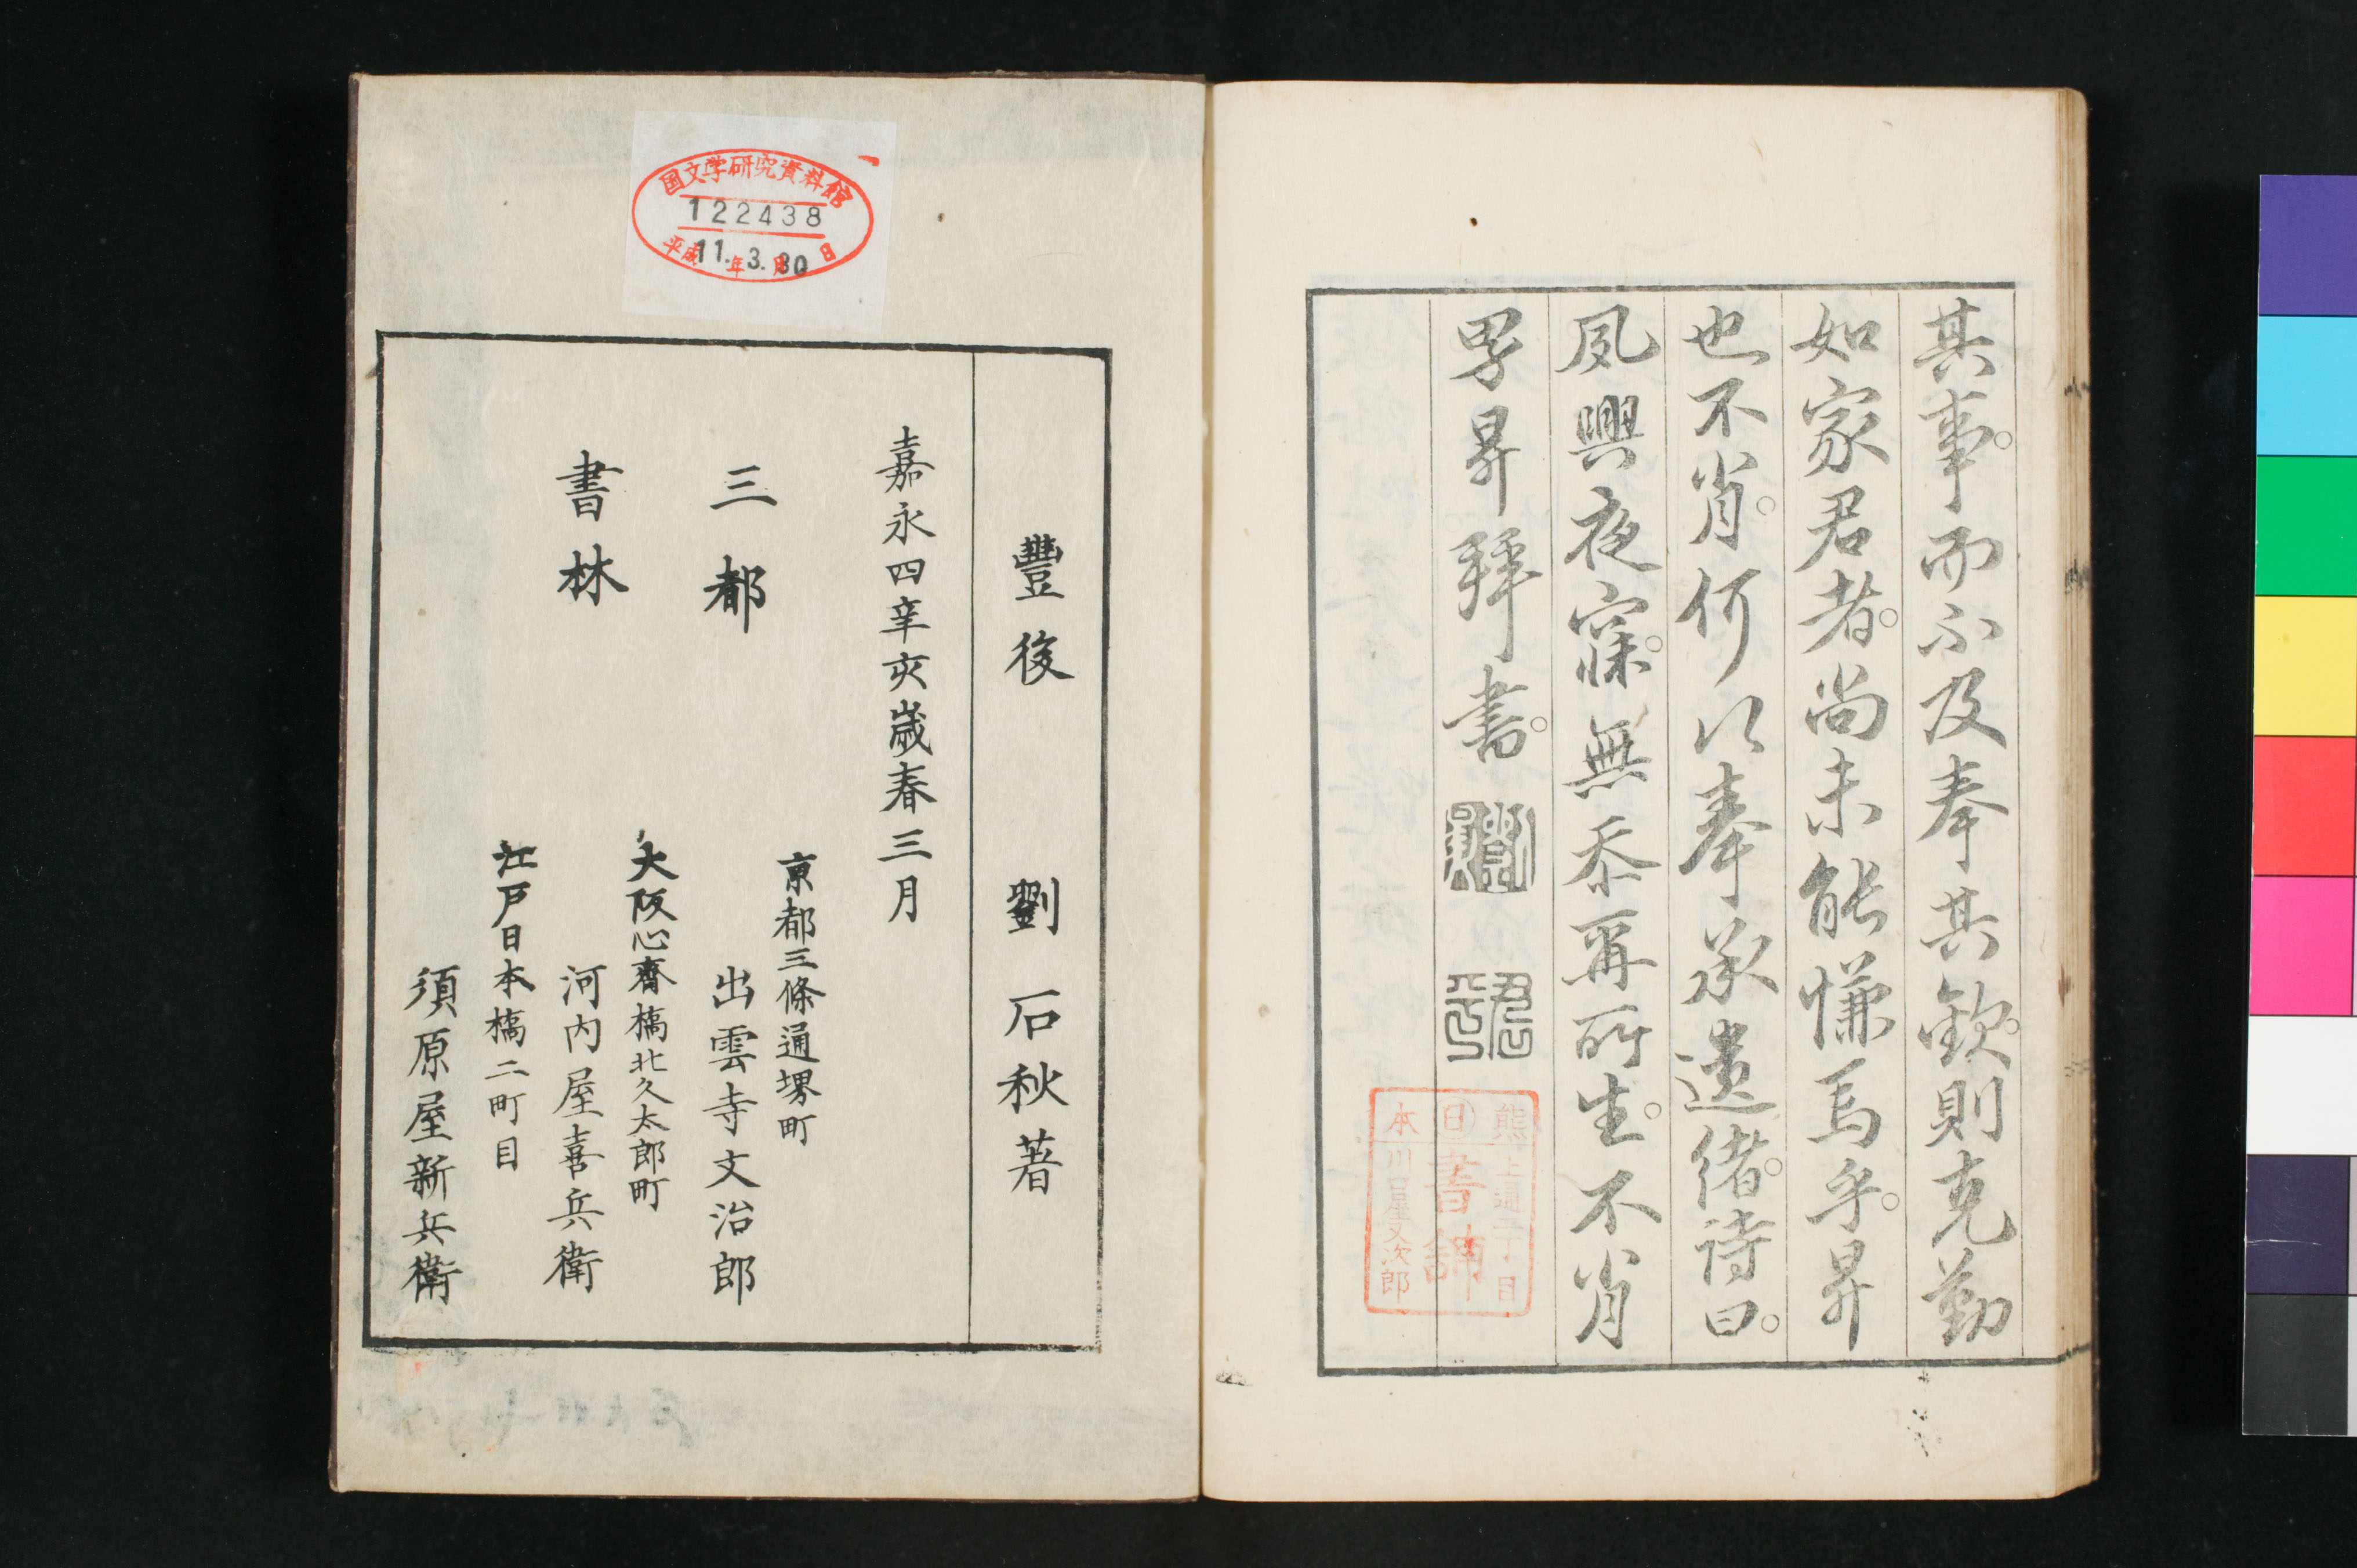 其事。而不及奉其歡。則克勤
如家君者。尚未能慊焉乎。昇
也不肖。何以奉承遺緒。詩曰。
夙興夜寐。無忝爾所生。不肖
男昇拜書。
熊上通二丁目
日書鋪
本川口屋又次郎
国文学研究資料館
122438
平成11年3月30日
豐後 劉石秋著
嘉永四辛亥歳春三月
三都
京都三條通堺町
出雲寺文治郎
書林
大阪心齋橋北久太郎町
河内屋喜兵衛
江戸日本橋二町目
須原屋新兵衛